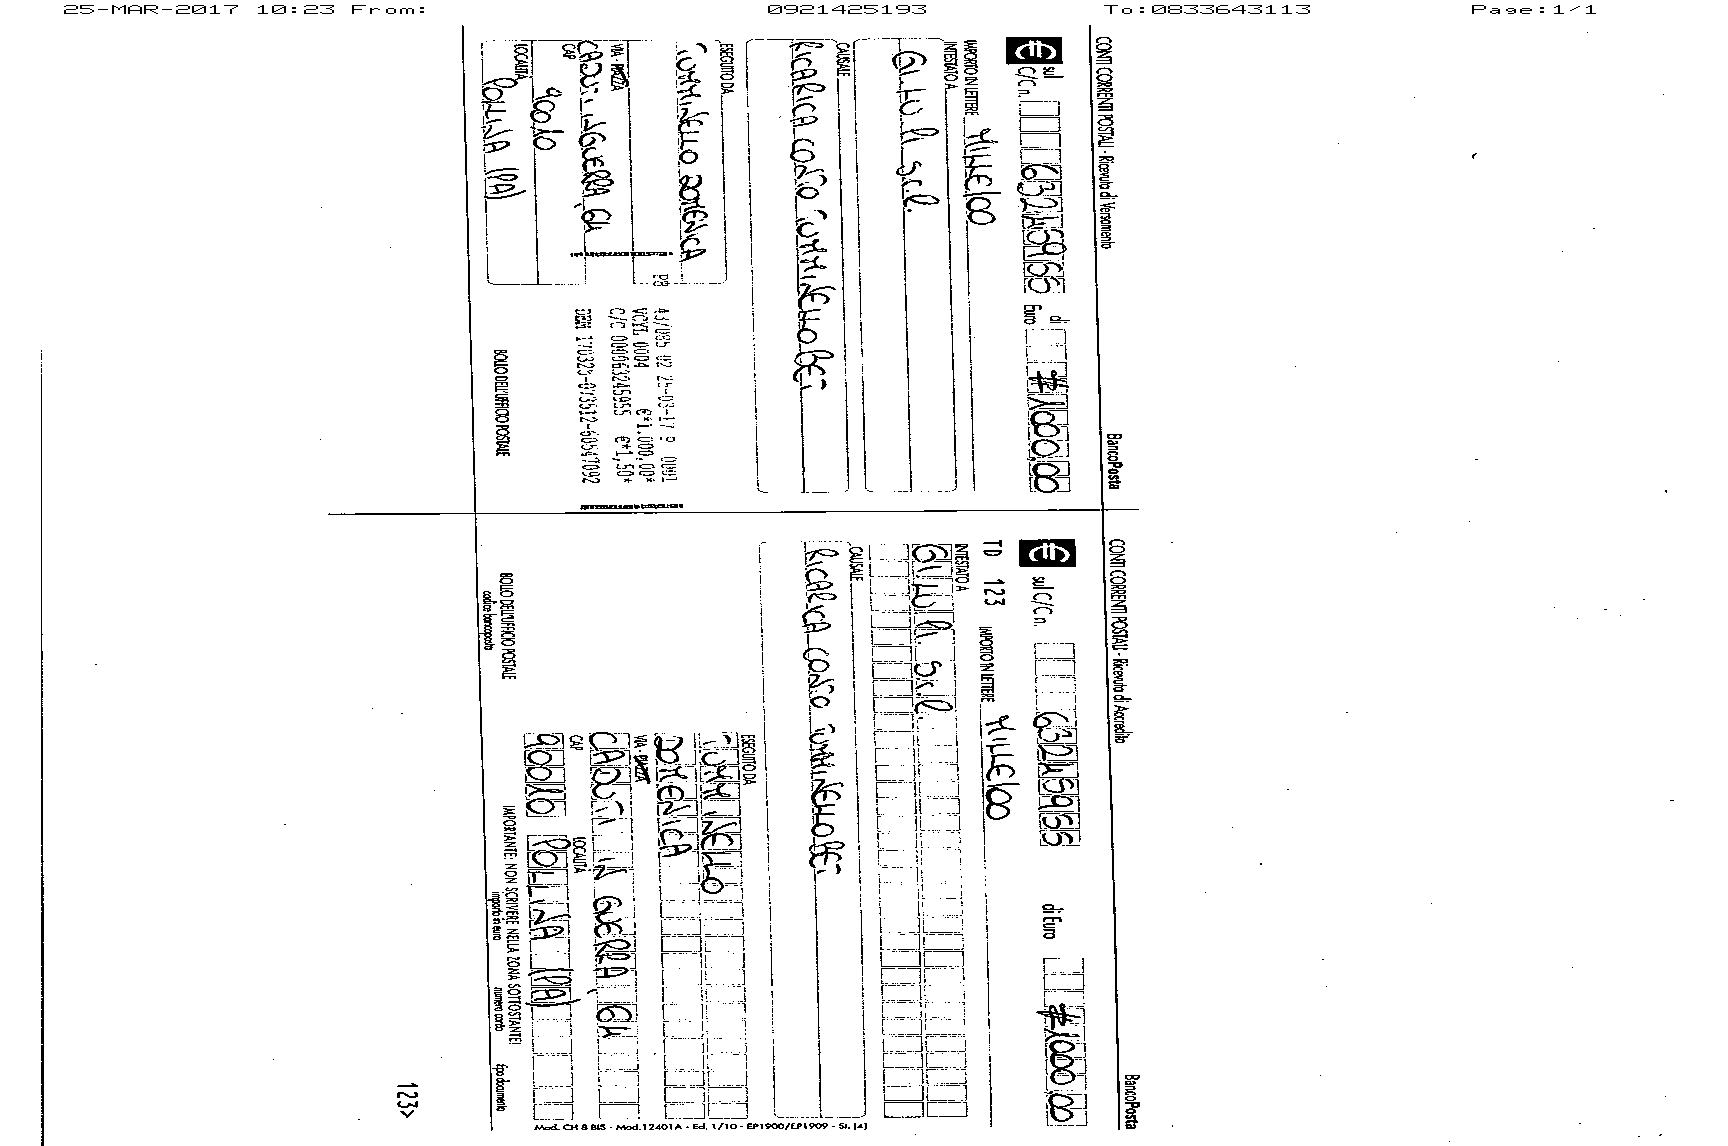 25-MAR-2017 10:23 From: 0921425193 To:0833643113 Page:1/1
CONTI CORRENTI POSTALI - Ricevuta di Versamento BancoPosta
sul C/C n. 632459955 di Euro #1000,00
IMPORTO IN LETTERE MILLE/00
INTESTATO A
GI.LU.PI S.r.l.
CAUSALE
RICARICA CONTO TUMMINELLOBET
ESEGUITO DA
TUMMINELLO DOMENICA
VIA - PIAZZA
CADUTI IN GUERRA, 64
CAP
90010
LOCALITÀ
POLLINA (PA)
43/085 02 25-03-17 P 0001
VCYL 0004 €*1.000,00*
C/C 000063245955 €*1,50*
BOLLO DELL'UFFICIO POSTALE
CONTI CORRENTI POSTALI - Ricevuta di Accredito BancoPosta
sul C/C n. 632459955 di Euro #1000 00
TD 123 IMPORTO IN LETTERE MILLE/00
INTESTATO A
GI.LU.PI. S.r.l.
CAUSALE
RICARICA CONTO TUMMINELLOBET
ESEGUITO DA
TUMMINELLO
DOMENICA
VIA - PIAZZA
CADUTI IN GUERRA, 64
CAP LOCALITÀ
90010 POLLINA (PA)
BOLLO DELL'UFFICIO POSTALE
codice bancoposta
IMPORTANTE: NON SCRIVERE NELLA ZONA SOTTOSTANTE!
importo in euro numero conto tipo documento
123>
Mod. CH 8 BIS - Mod.12401A - Ed. 1/10 - EP1900/EP1909 - St. [4]